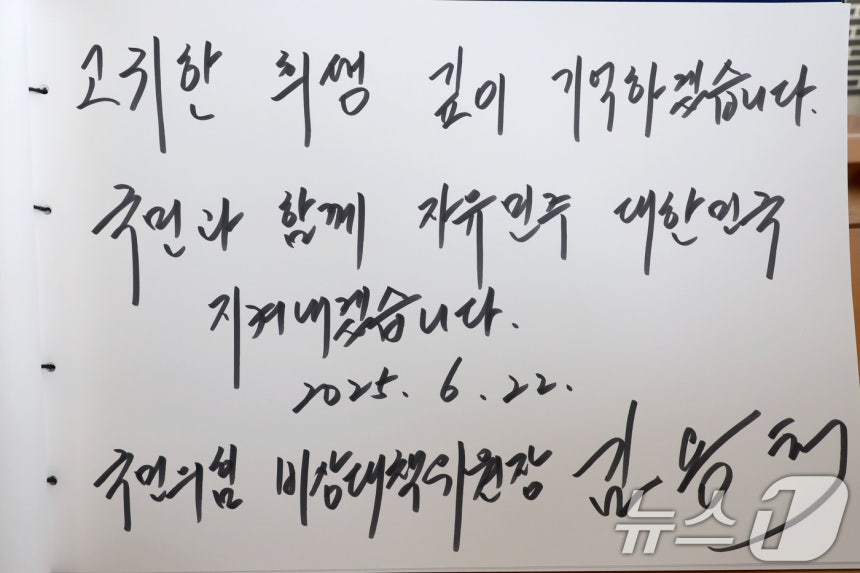 고귀한 희생 깊이 기억하겠습니다.
국민과 함께 자유민주 대한민국
지켜내겠습니다.
2025. 6. 22.
국민의힘 비상대책위원장 김용태
뉴스1